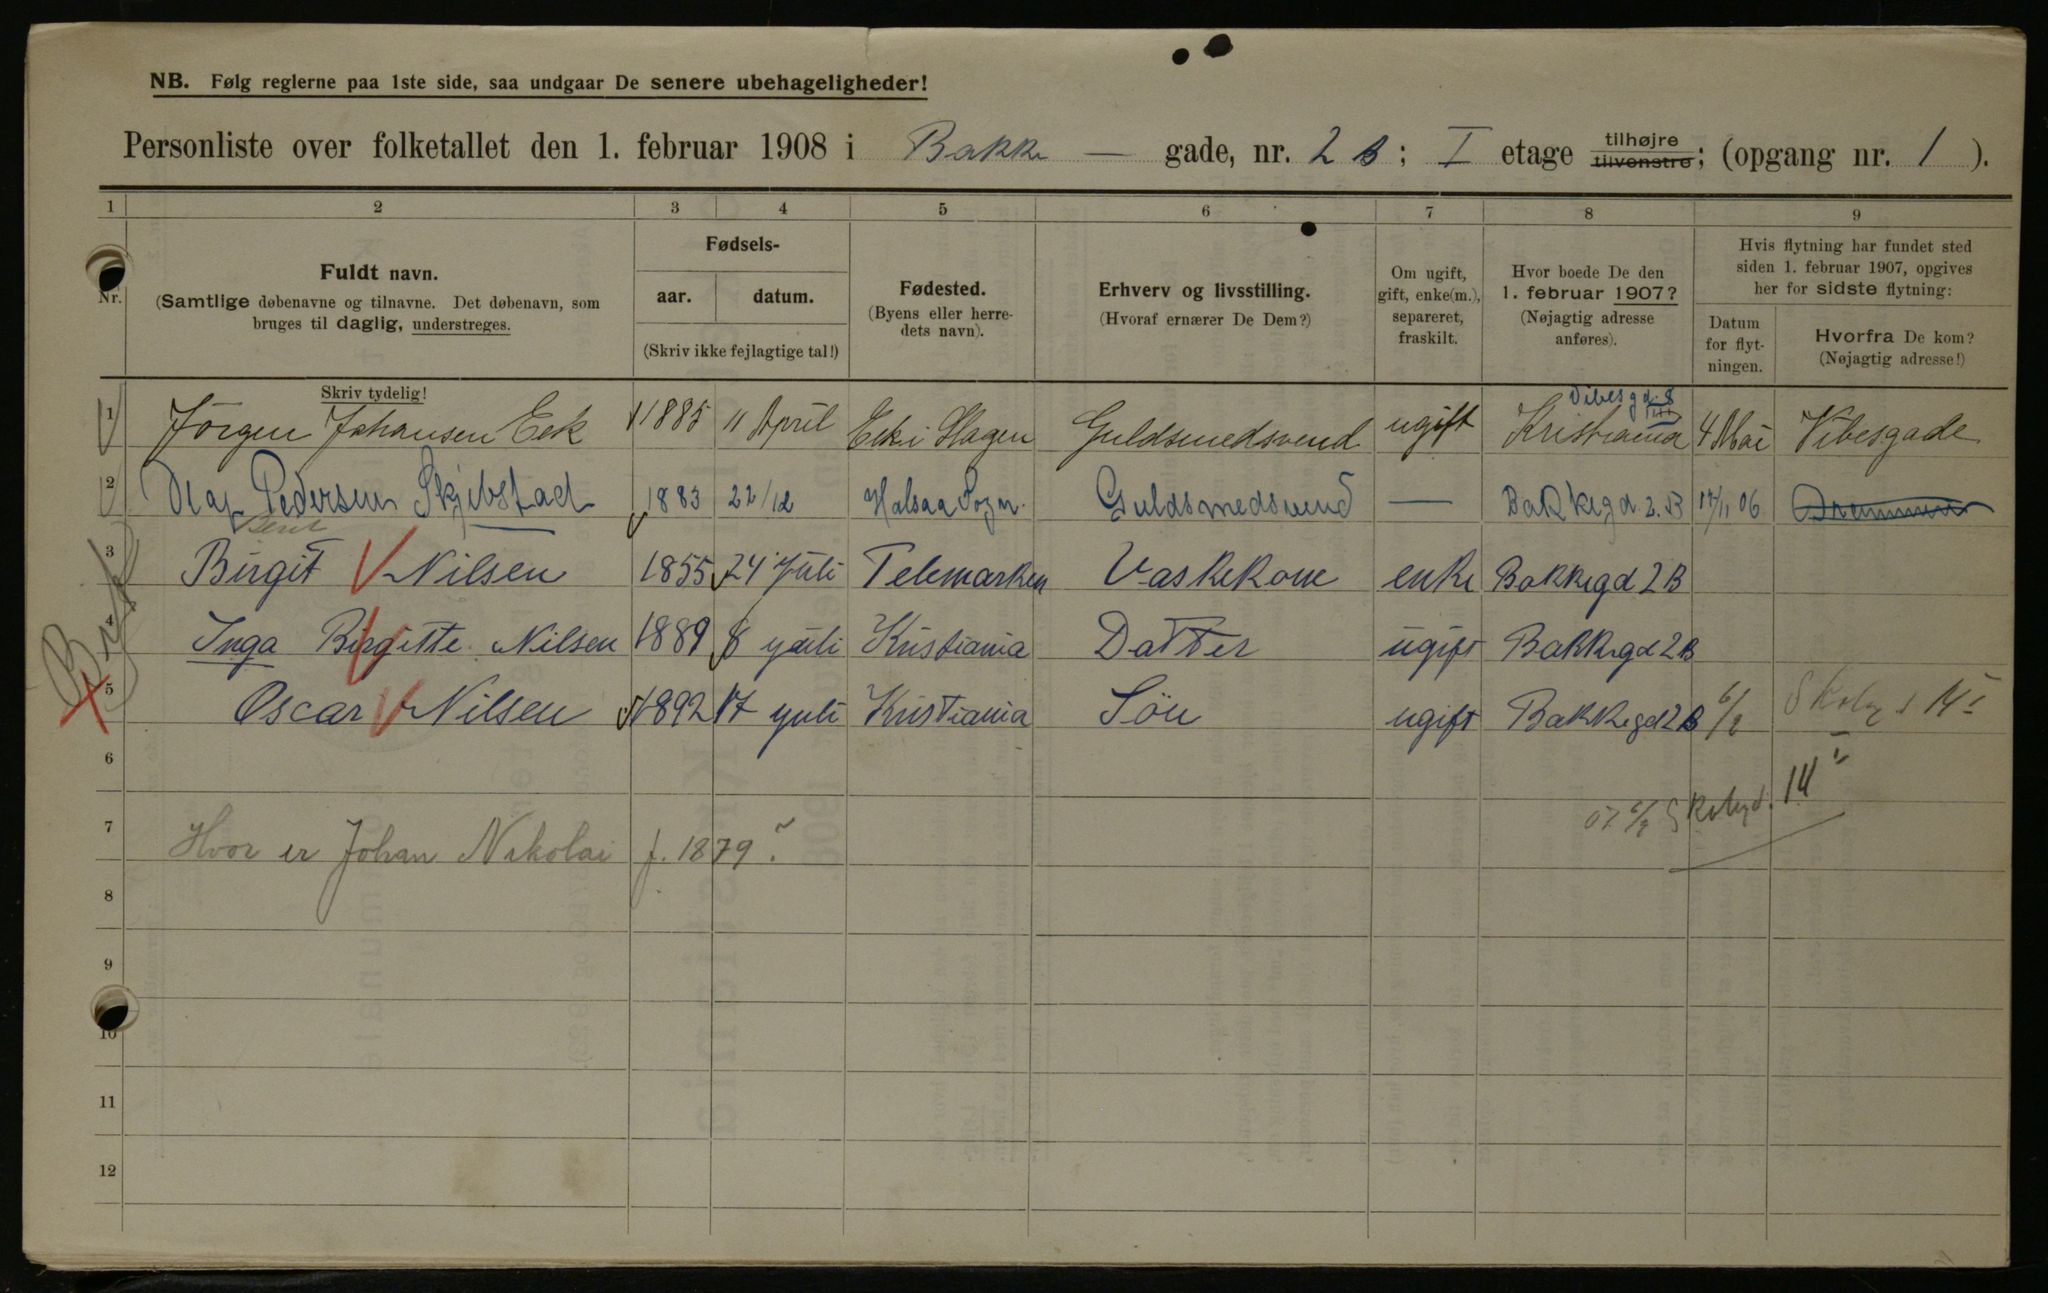 NB. Følg reglerne paa 1ste side, saa undgaar De senere ubehageligheder!
Personliste over folketallet den 1. februar 1908 i Bakke — gade, nr. 2 B; I etage tilhøjre tilvenstre; (opgang nr. 1).
1 2 3 4 5 6 7 8 9
Nr.
Fuldt navn.
(Samtlige døbenavne og tilnavne. Det døbenavn, som
bruges til daglig, understreges.
Skriv tydelig!
Fødsels-
aar. datum.
(Skriv ikke fejlagtige tal!)
Fødested.
(Byens eller herre-
dets navn).
Erhverv og livsstilling.
(Hvoraf ernærer De Dem?)
Om ugift,
gift, enke(m.),
separeret,
fraskilt.
Hvor boede De den
1. februar 1907?
(Nøjagtig adresse
anføres).
Hvis flytning har fundet sted
siden 1. februar 1907, opgives
her for sidste flytning:
Datum
for flyt-
ningen.
Hvorfra De kom?
(Nøjagtig adresse!)
Vibesgd. 8 III
1 Jörgen Johansen Eek 1885 11 April Eek i Hagen Guldsmedsvend ugift Kristiania 4 Mai Vibesgade
2 Olaf Pedersen Skjebstad 1883 22/12 Halsaa Sogn. Guldsmedsvend — Bakkegd. 2. B 17/11 06 Drammen
Bent
3 Birgit Nilsen 1855 24 Juli Telemarken Vaskekone enke Bakkegd 2 B
4 Inga Birgitte Nilsen 1889 8 yuli Kristiania Datter ugift Bakkegd 2 B
5 Oscar Nilsen 1892 17 yuli Kristiania Sön ugift Bakkegd 2 B 14 I
6
14
7 Hvor er Johan Nikolai f. 1879?
8
9
10
11
12